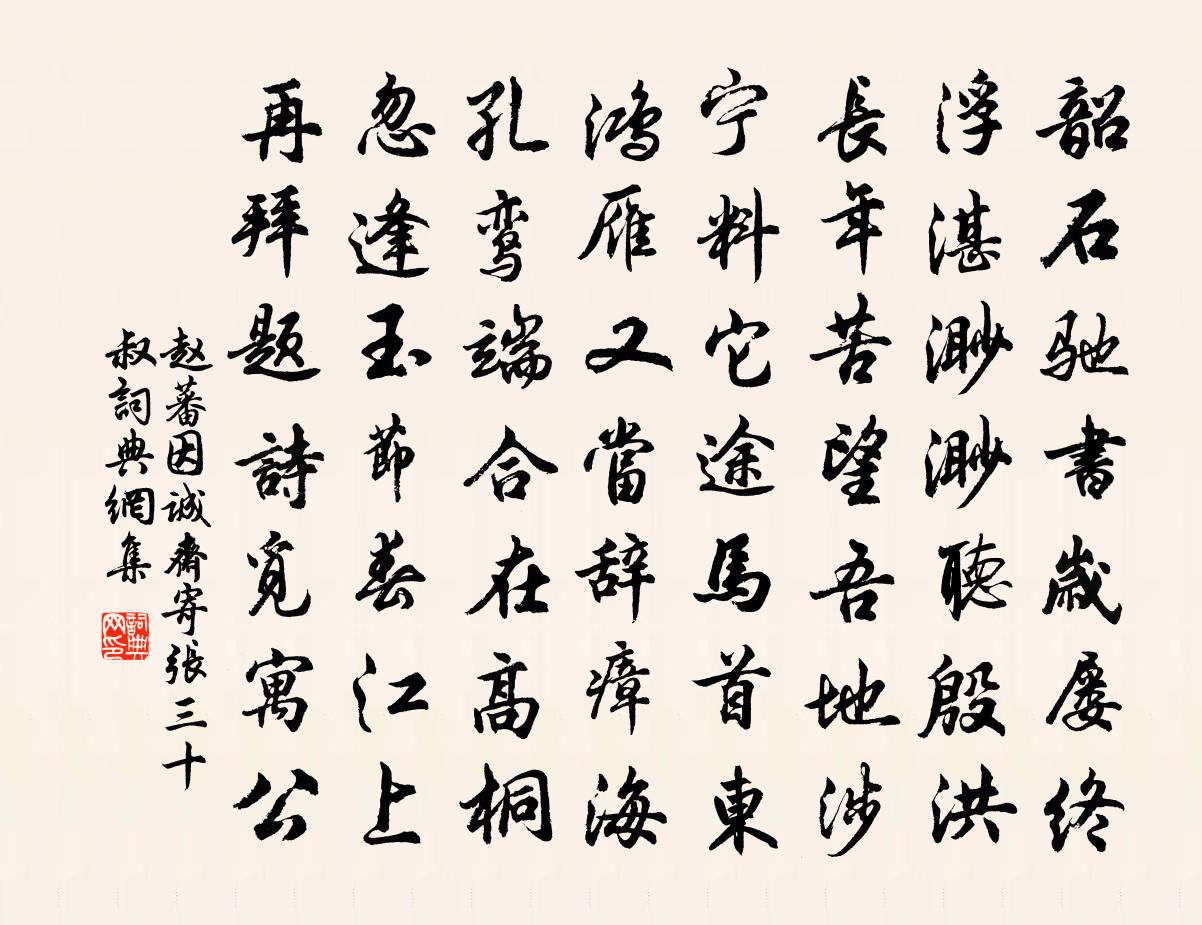 韶石馳書歲屢终
浮湛渺渺聽殷洪
長年苦望吾地涉
宁料它途馬首東
鸿雁又當辞瘴海
孔鸾端合在高桐
忽逢玉節春江上
再拜题詩覓寓公
赵蕃因诚齋寄張三十
叔詞典網集
詞典网印